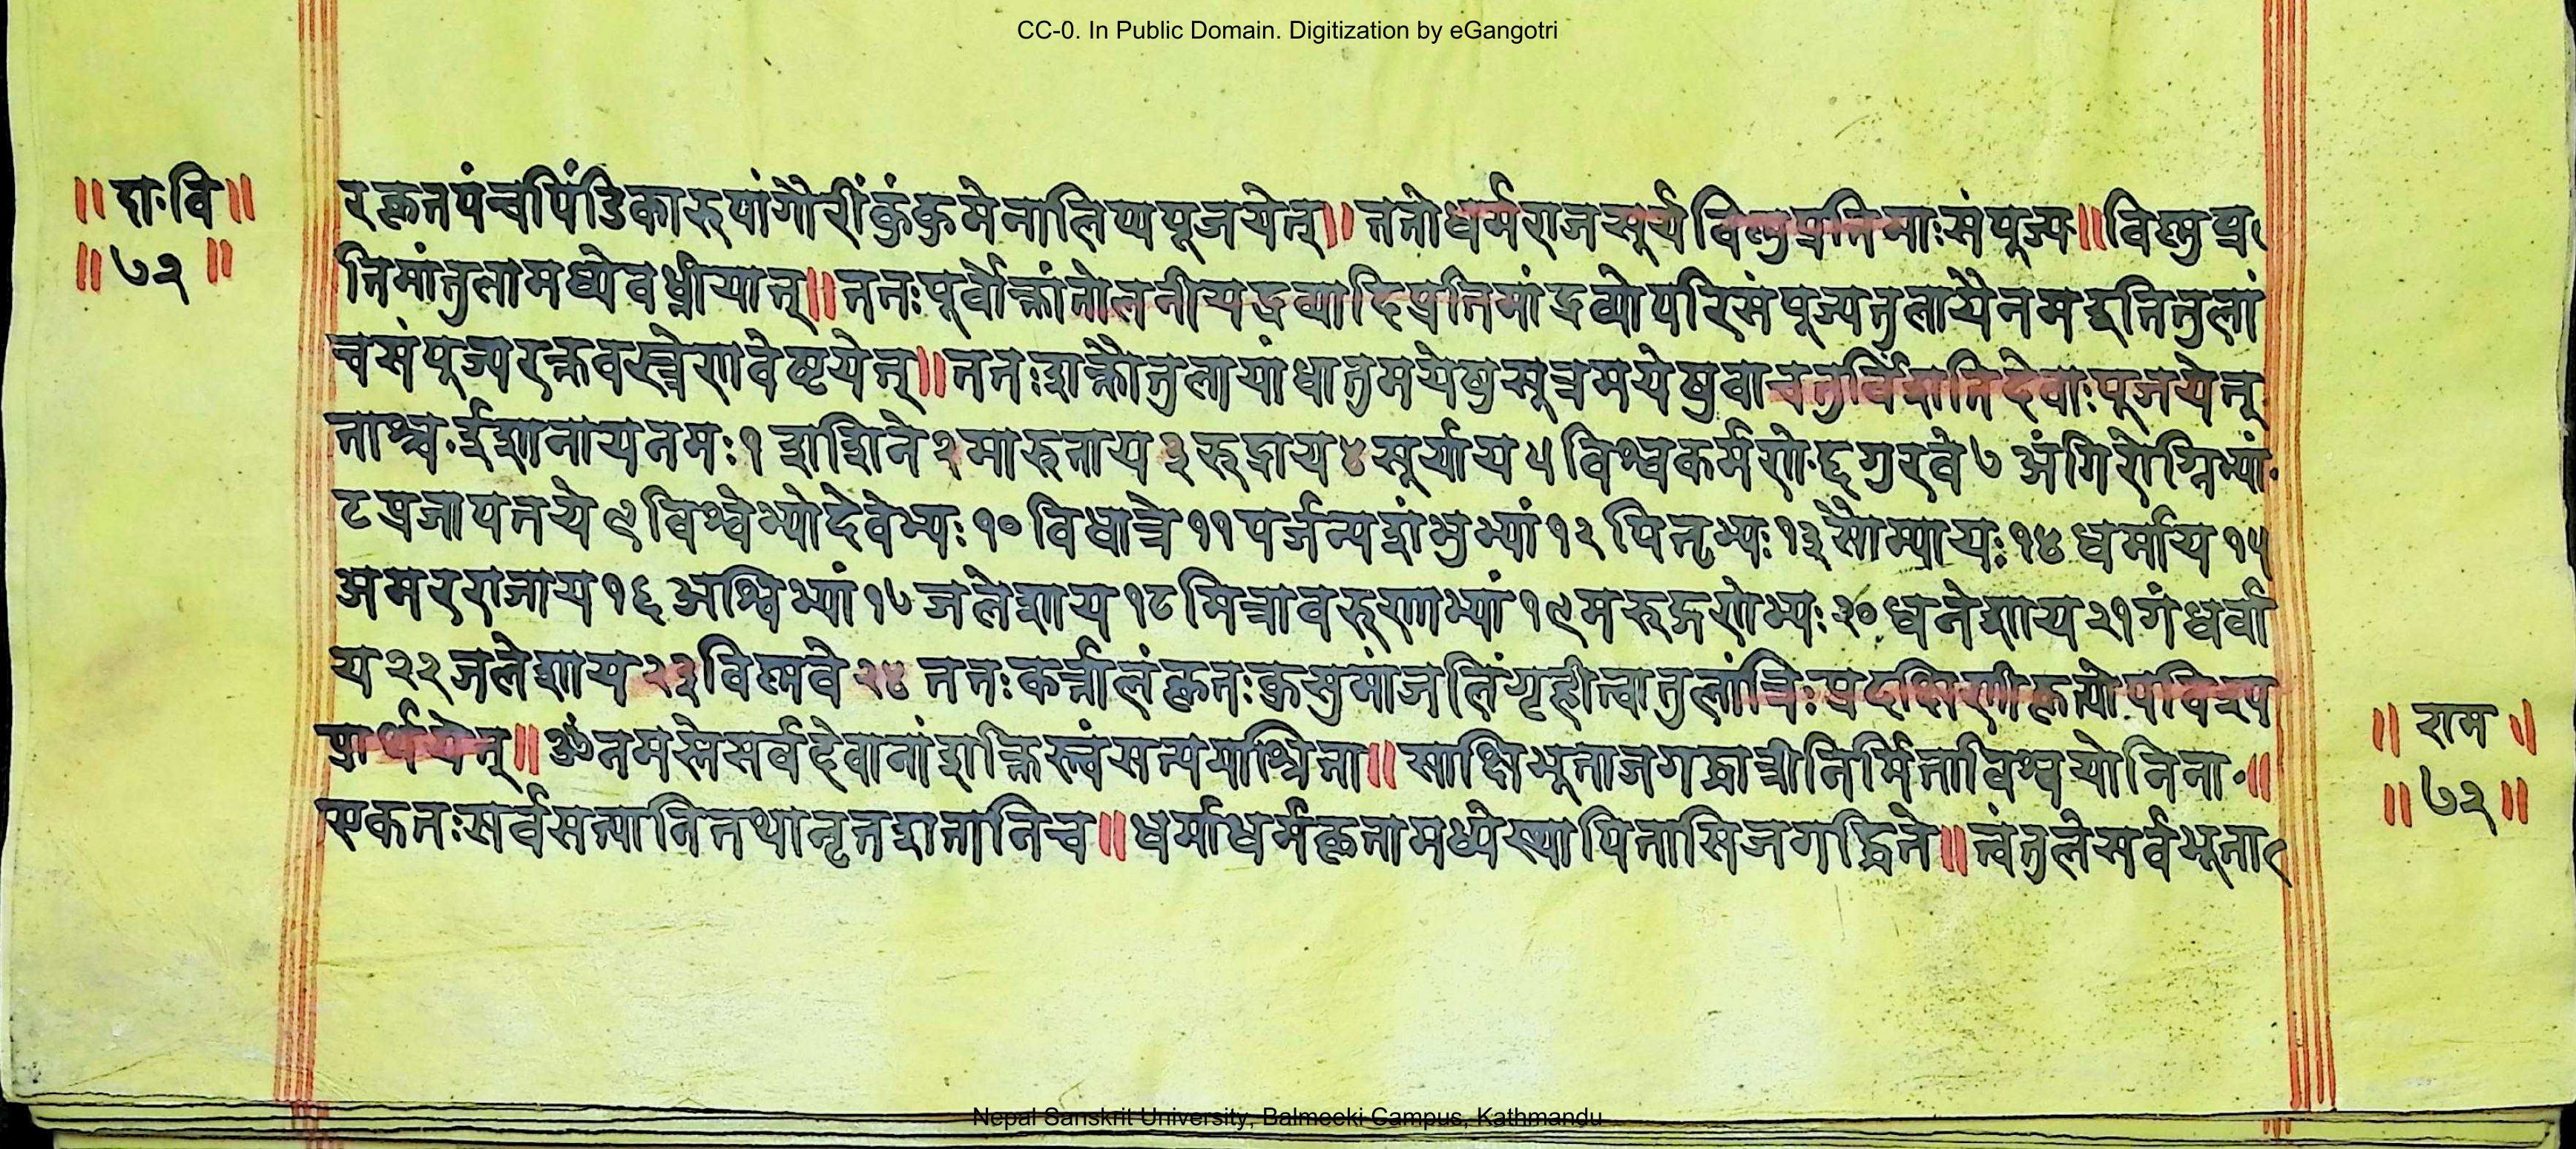 CC-0. In Public Domain. Digitization by eGangotri
॥ दा॰वि ॥
॥ ७२ ॥
रकृतपंचपिंडिकारुपांगौरींकुंकुमेनालिप्यपूजयेत्॥ ततोधर्मराजसूर्यविष्णुप्रतिमाःसंपूज्य॥विष्णुप्र
तिमांतुलामध्येवध्नीयात्॥ततःपूर्वोक्तांतोलनीयद्रव्यादिप्रतिमांद्रव्योपरिसंपूज्यतुलायैनमइतितुलां
चसंपूज्यरक्तवस्त्रेणवेष्टयेत्॥ततःशक्तौतुलायांधातुमयेषुसूत्रमयेषुवाचतुर्विंशतिदेवाःपूजयेत्
ताश्च॰ईशानायनमः१ शशिने२मारुताय३रूद्राय४सूर्याय५विश्वकर्मणे॰६गुरवे७ अंगिरोग्निभ्यां॰
८प्रजापतये९विश्वेभ्योदेवेभ्यः१०विधात्रे११पर्जन्यशंभुभ्यां१२पितृभ्यः१३सौम्यायः१४धर्माय१५
अमरराजाय१६अश्विभ्यां१७जलेशाय१८मित्रावरुणाभ्यां१९मरुद्गणेभ्यः२०धनेशाय२१गंधर्वा
य२२जलेशाय२३विष्णवे२४ ततःकर्त्तालंकृतःकुसुमांजलिंगृहीत्वातुलांत्रिःप्रदक्षिणीकृत्योपविश्य
प्रार्थयेत्॥ॐनमस्तेसर्वदेवानांशक्तिस्त्वंसत्यमाश्रिता॥साक्षिभूताजगद्धात्रीनिर्मिताविश्वयोनिना॰॥
एकतःसर्वसत्यानितथानृतशतानिच॥धर्माधर्मकृतामध्येस्थापितासिजगद्धिते॥त्वंतुलेसर्वभूता
॥ राम ॥
॥ ७२ ॥
Nepal Sanskrit University, Balmeeki Campus, Kathmandu